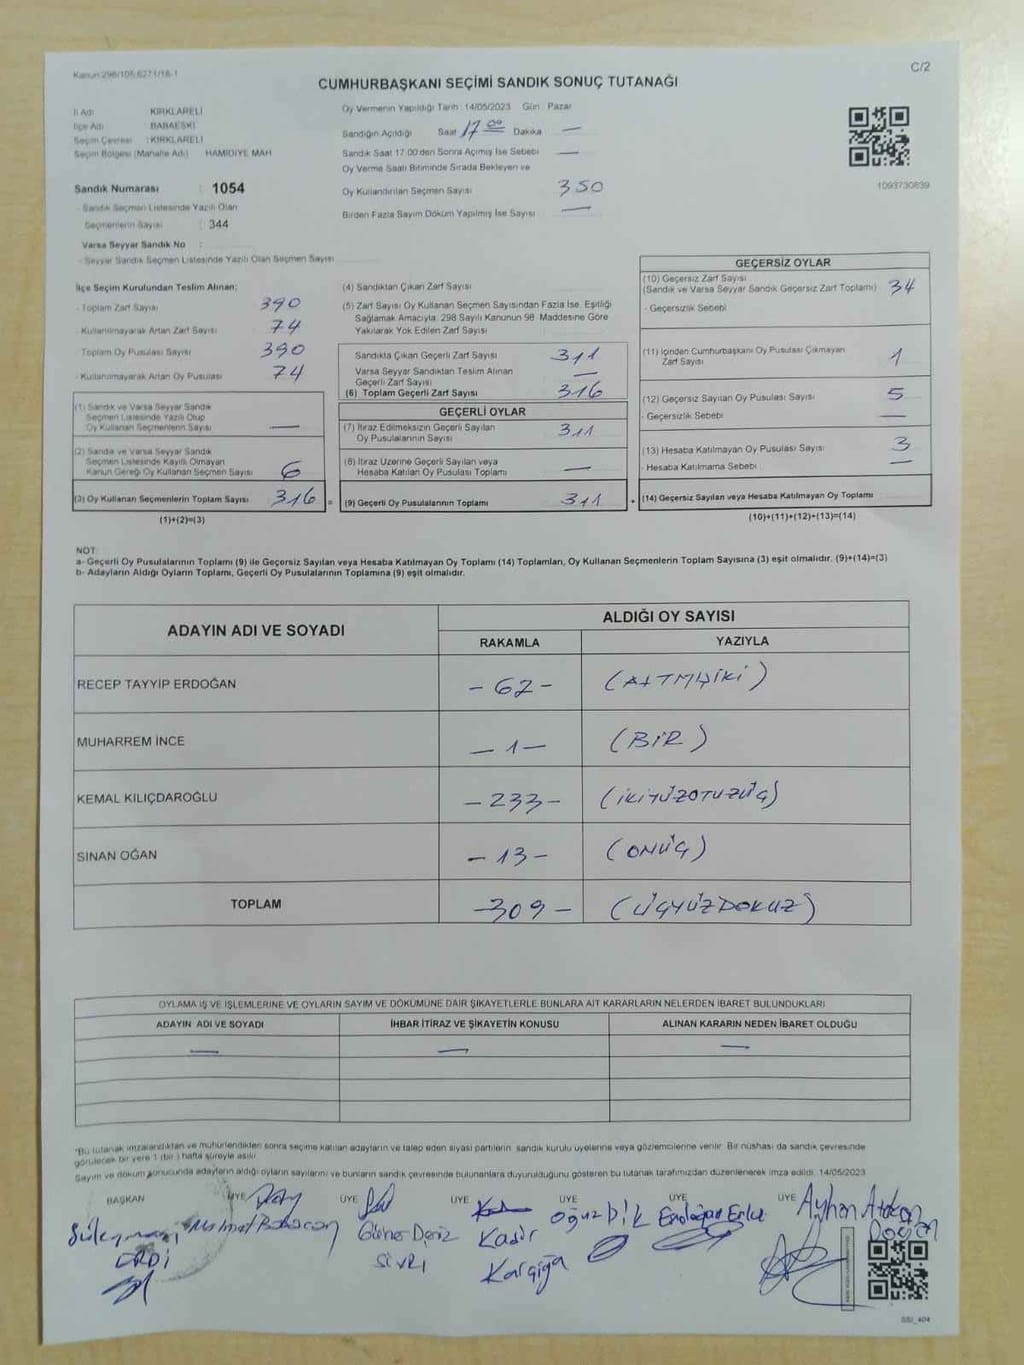 Kanun:298/105;6271/16-1
C/2
CUMHURBAŞKANI SEÇİMİ SANDIK SONUÇ TUTANAĞI
İl Adı : KIRKLARELİ
İlçe Adı : BABAESKİ
Seçim Çevresi : KIRKLARELİ
Seçim Bölgesi (Mahalle Adı) : HAMİDİYE MAH
Sandık Numarası : 1054
- Sandık Seçmen Listesinde Yazılı Olan
Seçmenlerin Sayısı : 344
Varsa Seyyar Sandık No :
- Seyyar Sandık Seçmen Listesinde Yazılı Olan Seçmen Sayısı
Oy Vermenin Yapıldığı Tarih : 14/05/2023 Gün : Pazar
Sandığın Açıldığı Saat 17 00 Dakika —
Sandık Saat 17:00'den Sonra Açılmış İse Sebebi —
Oy Verme Saati Bitiminde Sırada Bekleyen ve
Oy Kullandırılan Seçmen Sayısı 350
Birden Fazla Sayım Döküm Yapılmış İse Sayısı —
1093730839
İlçe Seçim Kurulundan Teslim Alınan:
- Toplam Zarf Sayısı 390
- Kullanılmayarak Artan Zarf Sayısı 74
Toplam Oy Pusulası Sayısı 390
- Kullanılmayarak Artan Oy Pusulası 74
(1) Sandık ve Varsa Seyyar Sandık
Seçmen Listesinde Yazılı Olup
Oy Kullanan Seçmenlerin Sayısı —
(2) Sandık ve Varsa Seyyar Sandık
Seçmen Listesinde Kayıtlı Olmayan
Kanun Gereği Oy Kullanan Seçmen Sayısı 6
(3) Oy Kullanan Seçmenlerin Toplam Sayısı 316
(1)+(2)=(3)
(4) Sandıktan Çıkan Zarf Sayısı
(5) Zarf Sayısı Oy Kullanan Seçmen Sayısından Fazla İse, Eşitliği
Sağlamak Amacıyla, 298 Sayılı Kanunun 98. Maddesine Göre
Yakılarak Yok Edilen Zarf Sayısı
Sandıkta Çıkan Geçerli Zarf Sayısı 311
Varsa Seyyar Sandıktan Teslim Alınan
Geçerli Zarf Sayısı —
(6) Toplam Geçerli Zarf Sayısı 316
GEÇERLİ OYLAR
(7) İtiraz Edilmeksizin Geçerli Sayılan
Oy Pusulalarının Sayısı 311
(8) İtiraz Üzerine Geçerli Sayılan veya
Hesaba Katılan Oy Pusulası Toplamı —
= (9) Geçerli Oy Pusulalarının Toplamı 311
GEÇERSİZ OYLAR
(10) Geçersiz Zarf Sayısı
(Sandık ve Varsa Seyyar Sandık Geçersiz Zarf Toplamı) 34
- Geçersizlik Sebebi
(11) İçinden Cumhurbaşkanı Oy Pusulası Çıkmayan
Zarf Sayısı 1
(12) Geçersiz Sayılan Oy Pusulası Sayısı 5
- Geçersizlik Sebebi —
(13) Hesaba Katılmayan Oy Pusulası Sayısı 3
- Hesaba Katılmama Sebebi —
+ (14) Geçersiz Sayılan veya Hesaba Katılmayan Oy Toplamı
(10)+(11)+(12)+(13)=(14)
NOT
a- Geçerli Oy Pusulalarının Toplamı (9) ile Geçersiz Sayılan veya Hesaba Katılmayan Oy Toplamı (14) Toplamları, Oy Kullanan Seçmenlerin Toplam Sayısına (3) eşit olmalıdır. (9)+(14)=(3)
b- Adayların Aldığı Oyların Toplamı, Geçerli Oy Pusulalarının Toplamına (9) eşit olmalıdır.
ADAYIN ADI VE SOYADI
ALDIĞI OY SAYISI
RAKAMLA YAZIYLA
RECEP TAYYİP ERDOĞAN -62- (ALTMIŞİKİ)
MUHARREM İNCE -1- (BİR)
KEMAL KILIÇDAROĞLU -233- (İKİYÜZOTUZÜÇ)
SİNAN OĞAN -13- (ONÜÇ)
TOPLAM -309- (ÜÇYÜZDOKUZ)
OYLAMA İŞ VE İŞLEMLERİNE VE OYLARIN SAYIM VE DÖKÜMÜNE DAİR ŞİKAYETLERLE BUNLARA AİT KARARLARIN NELERDEN İBARET BULUNDUKLARI
ADAYIN ADI VE SOYADI İHBAR İTİRAZ VE ŞİKAYETİN KONUSU ALINAN KARARIN NEDEN İBARET OLDUĞU
— — —
*Bu tutanak imzalandıktan ve mühürlendikten sonra seçime katılan adayların ve talep eden siyasi partilerin sandık kurulu üyelerine veya gözlemcilerine verilir. Bir nüshası da sandık çevresinde
görülecek bir yere 1 (bir) hafta süreyle asılır.
Sayım ve döküm sonucunda adayların aldığı oyların sayılarını ve bunların sandık çevresinde bulunanlara duyurulduğunu gösteren bu tutanak tarafımızdan düzenlenerek imza edildi. 14/05/2023
BAŞKAN ÜYE ÜYE ÜYE ÜYE ÜYE ÜYE
Süleyman Mehmet Güner Deniz Kadir Oğuz Dik Erdoğan Ayhan
SİVRİ Kargığa Doğan
SSI_404